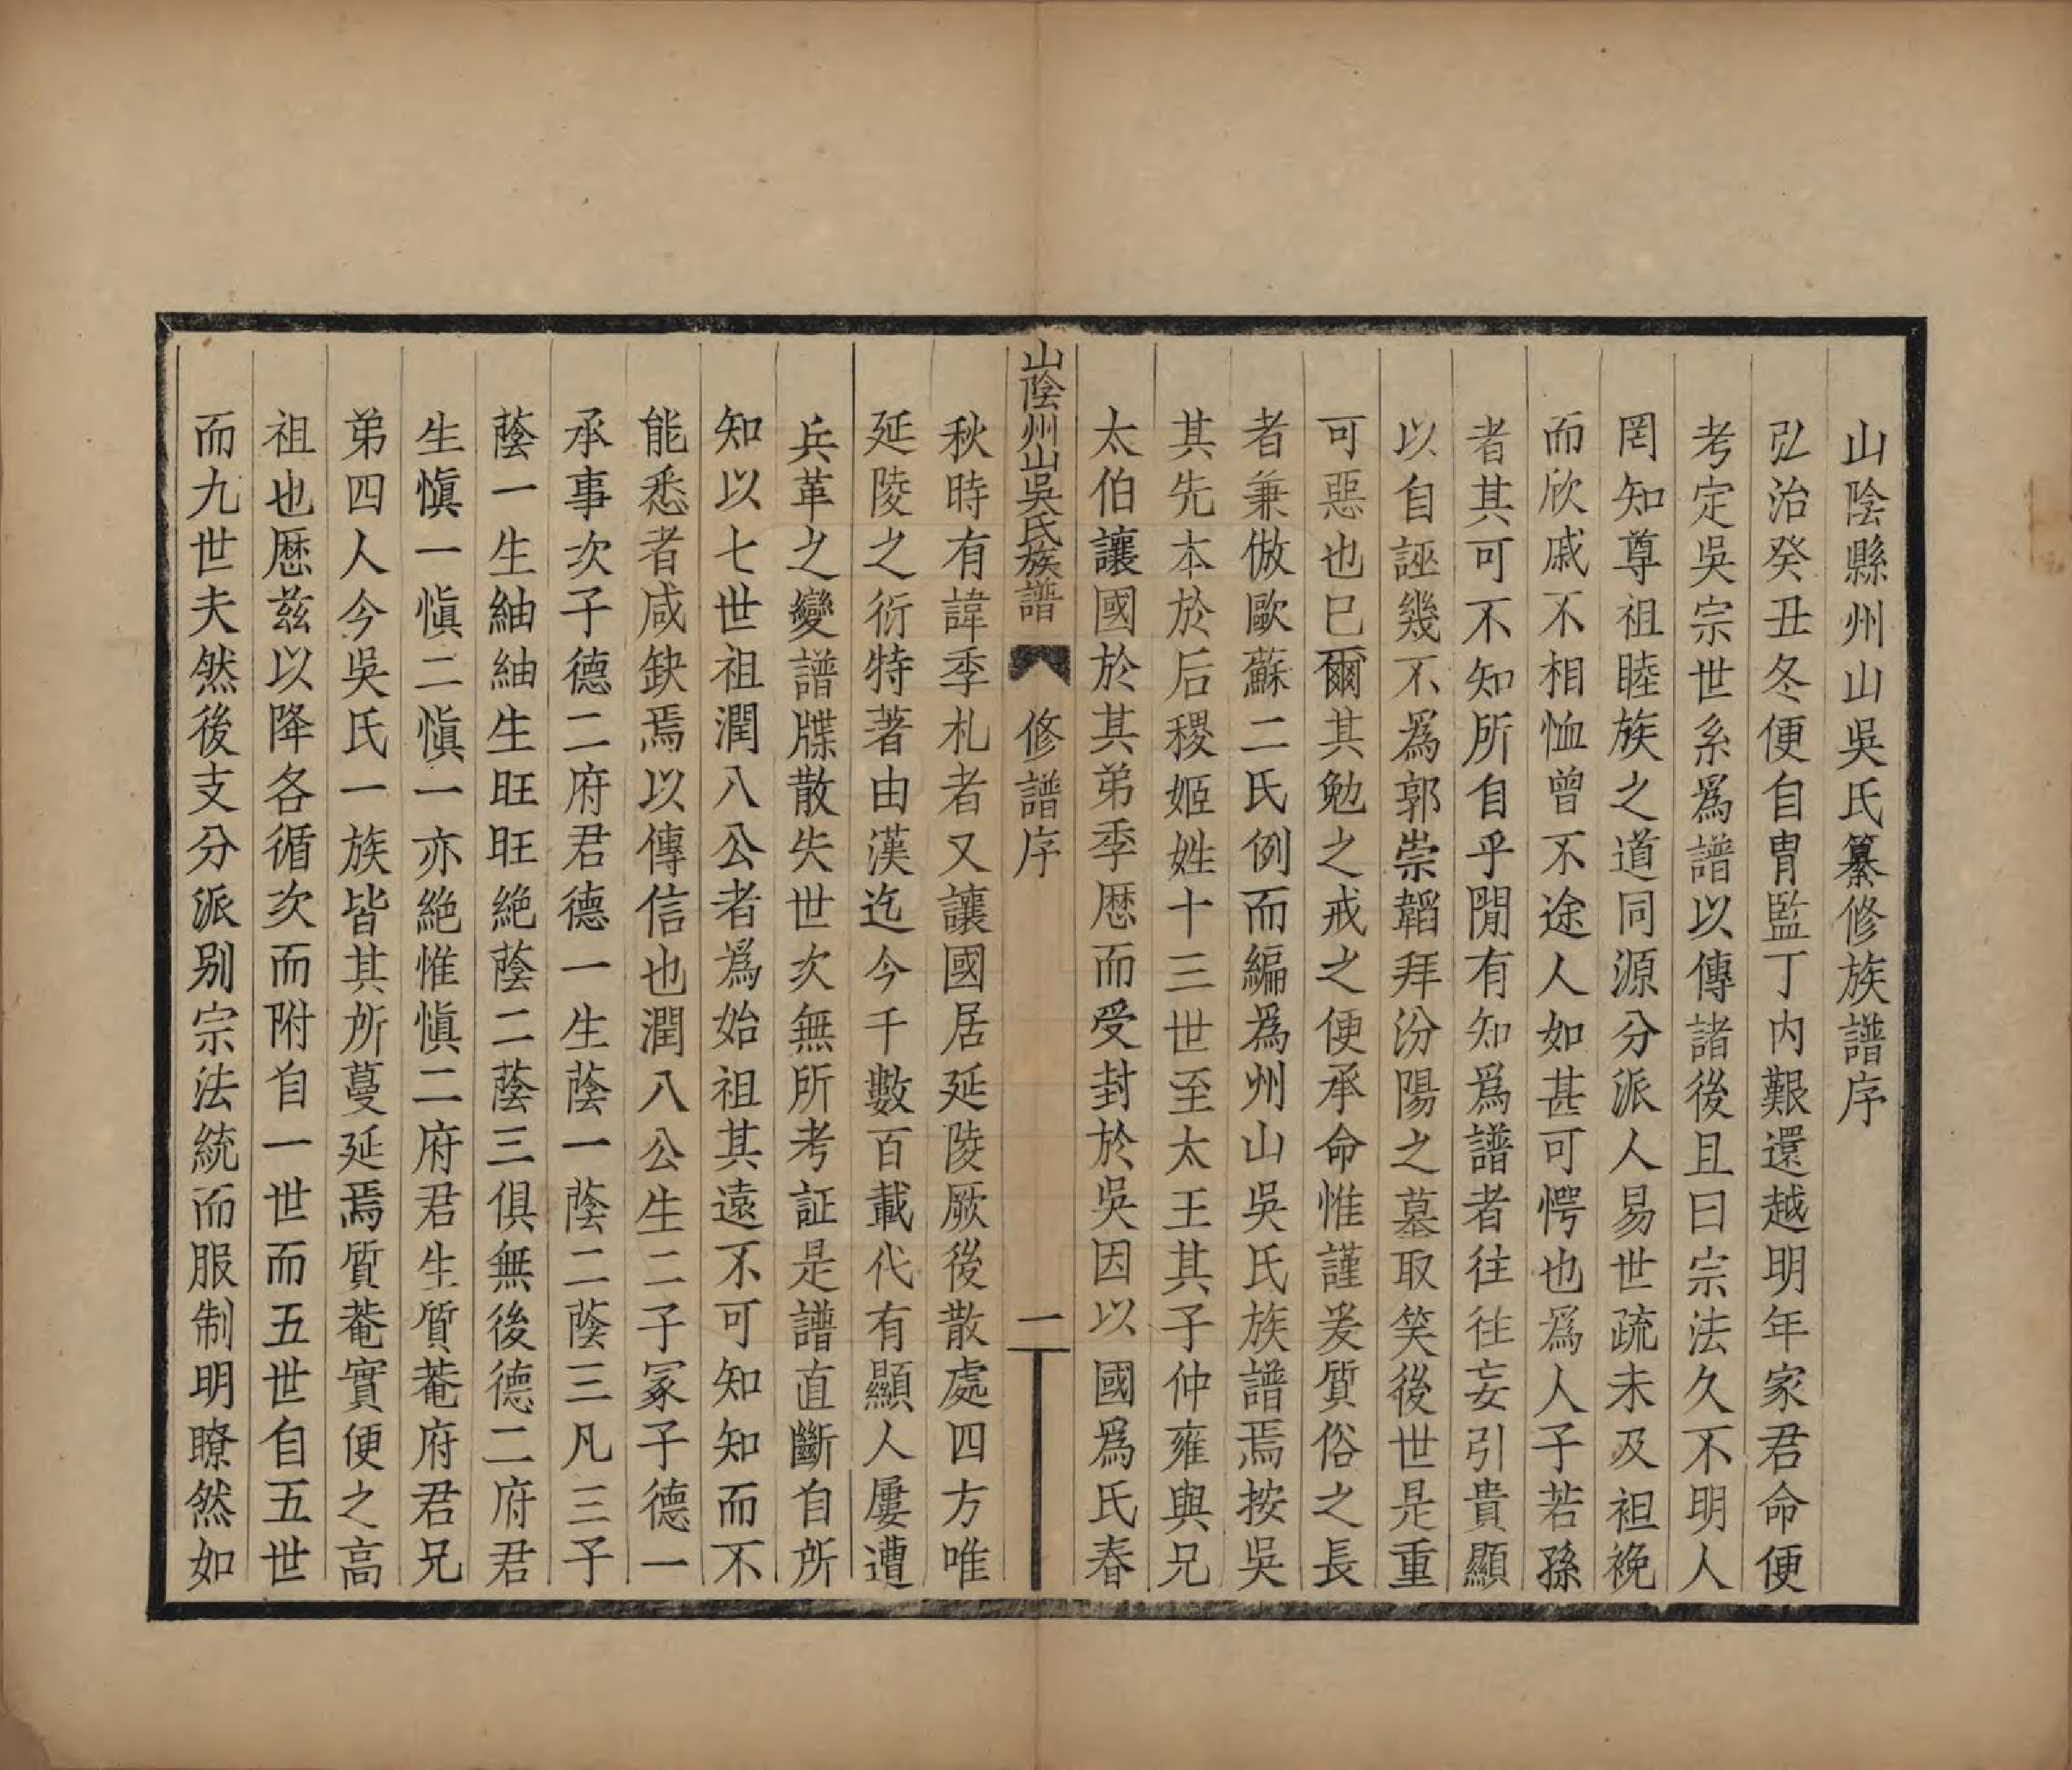 山陰縣州山吳氏纂修族譜序
弘治癸丑冬便自胄監丁內艱還越明年家君命便
考定吳宗世系爲譜以傳諸後且曰宗法久不明人
罔知尊祖睦族之道同源分派人易世疏未及袒裞
而欣戚不相恤曾不途人如甚可愕也爲人子若孫
者其可不知所自乎間有知爲譜者往往妄引貴顯
以自誣幾不爲郭崇韜拜汾陽之墓取笑後世是重
可惡也已爾其勉之戒之便承命惟謹爰質俗之長
者兼倣歐蘇二氏例而編爲州山吳氏族譜焉按吳
其先本於后稷姬姓十三世至太王其子仲雍與兄
太伯讓國於其弟季厯而受封於吳因以國爲氏春
山陰州山吳氏族譜 修譜序 一
秋時有諱季札者又讓國居延陵厥後散處四方唯
延陵之衍特著由漢迄今千數百載代有顯人屢遭
兵革之變譜牒散失世次無所考証是譜直斷自所
知以七世祖潤八公者爲始祖其遠不可知知而不
能悉者咸缺焉以傳信也潤八公生二子冢子德一
承事次子德二府君德一生蔭一蔭二蔭三凡三子
蔭一生紬紬生旺旺絕蔭二蔭三俱無後德二府君
生愼一愼二愼一亦絕惟愼二府君生質菴府君兄
弟四人今吳氏一族皆其所蔓延焉質菴實便之高
祖也厯茲以降各循次而附自一世而五世自五世
而九世夫然後支分派別宗法統而服制明瞭然如